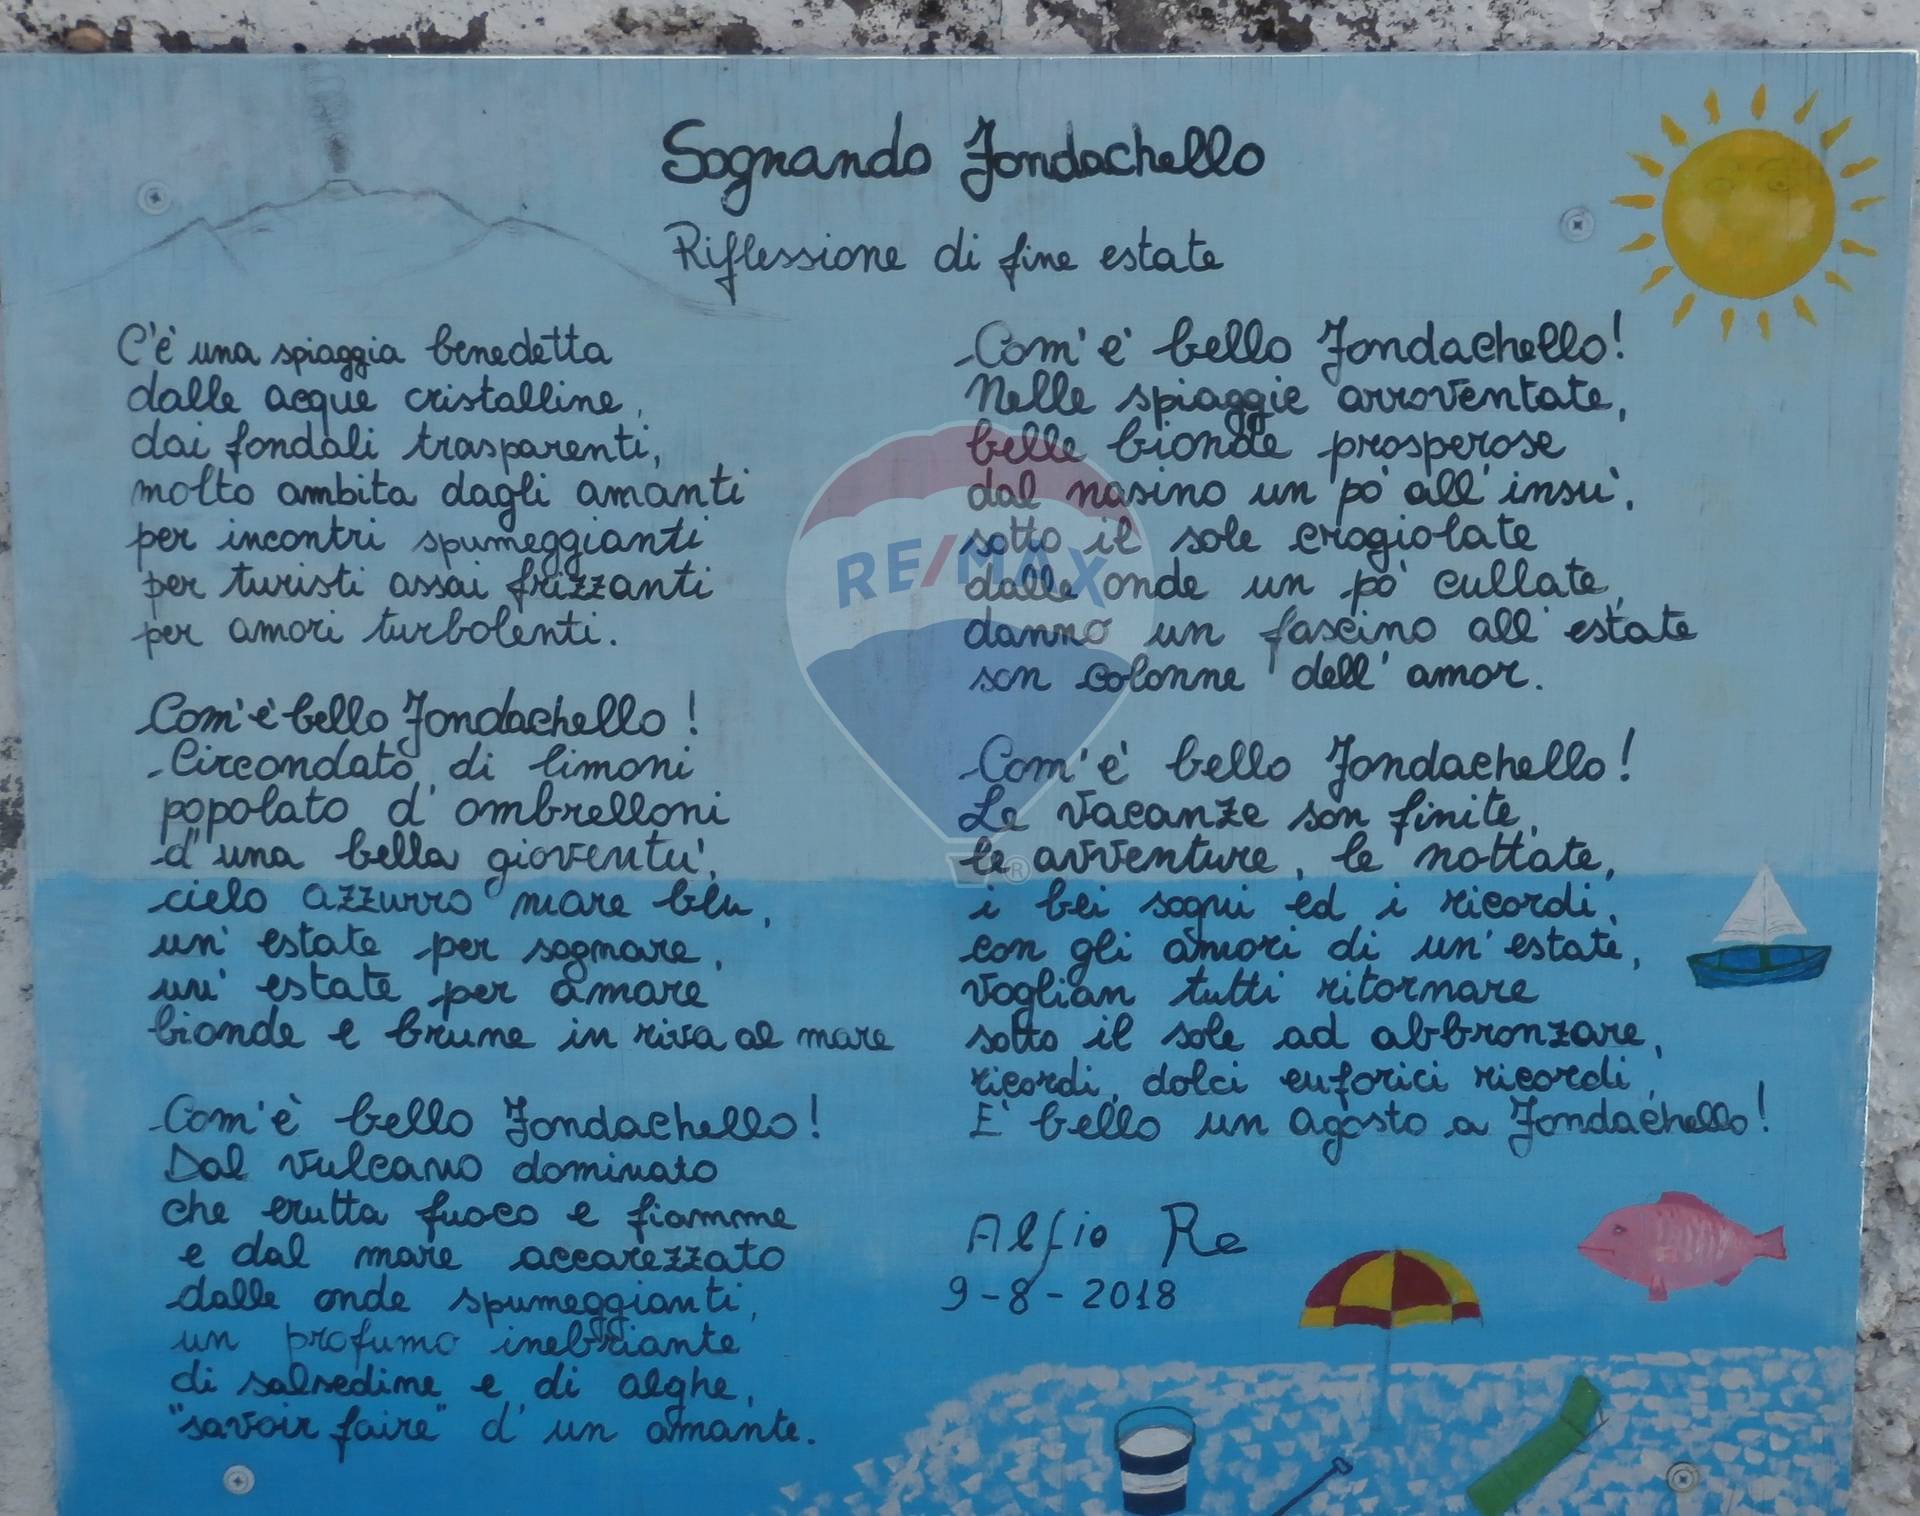 Sognando Fondachello
Riflessione di fine estate
C'è una spiaggia benedetta
dalle acque cristalline,
dai fondali trasparenti,
molto ambita dagli amanti
per incontri spumeggianti
per turisti assai frizzanti
per amori turbolenti.
Com'è bello Fondachello!
Circondato di limoni
popolato d'ombrelloni
d'una bella gioventu',
cielo azzurro mare blu,
un'estate per sognare,
un'estate per amare
bionde e brune in riva al mare
Com'è bello Fondachello!
Dal vulcano dominato
che erutta fuoco e fiamme
e dal mare accarezzato
dalle onde spumeggianti,
un profumo inebriante
di salsedine e di alghe,
"savoir faire" d'un amante.
Com'è bello Fondachello!
Nelle spiaggie arroventate,
belle bionde prosperose
dal nasino un pò all'insu',
sotto il sole crogiolate
dalle onde un pò cullate,
danno un fascino all'estate
son colonne dell'amor.
Com'è bello Fondachello!
Le vacanze son finite,
le avventure, le nottate,
i bei sogni ed i ricordi,
con gli amori di un'estate,
voglian tutti ritornare
sotto il sole ad abbronzare,
ricordi, dolci euforici ricordi,
E' bello un agosto a Fondachello!
Alfio Re
9-8-2018
RE/MAX
®